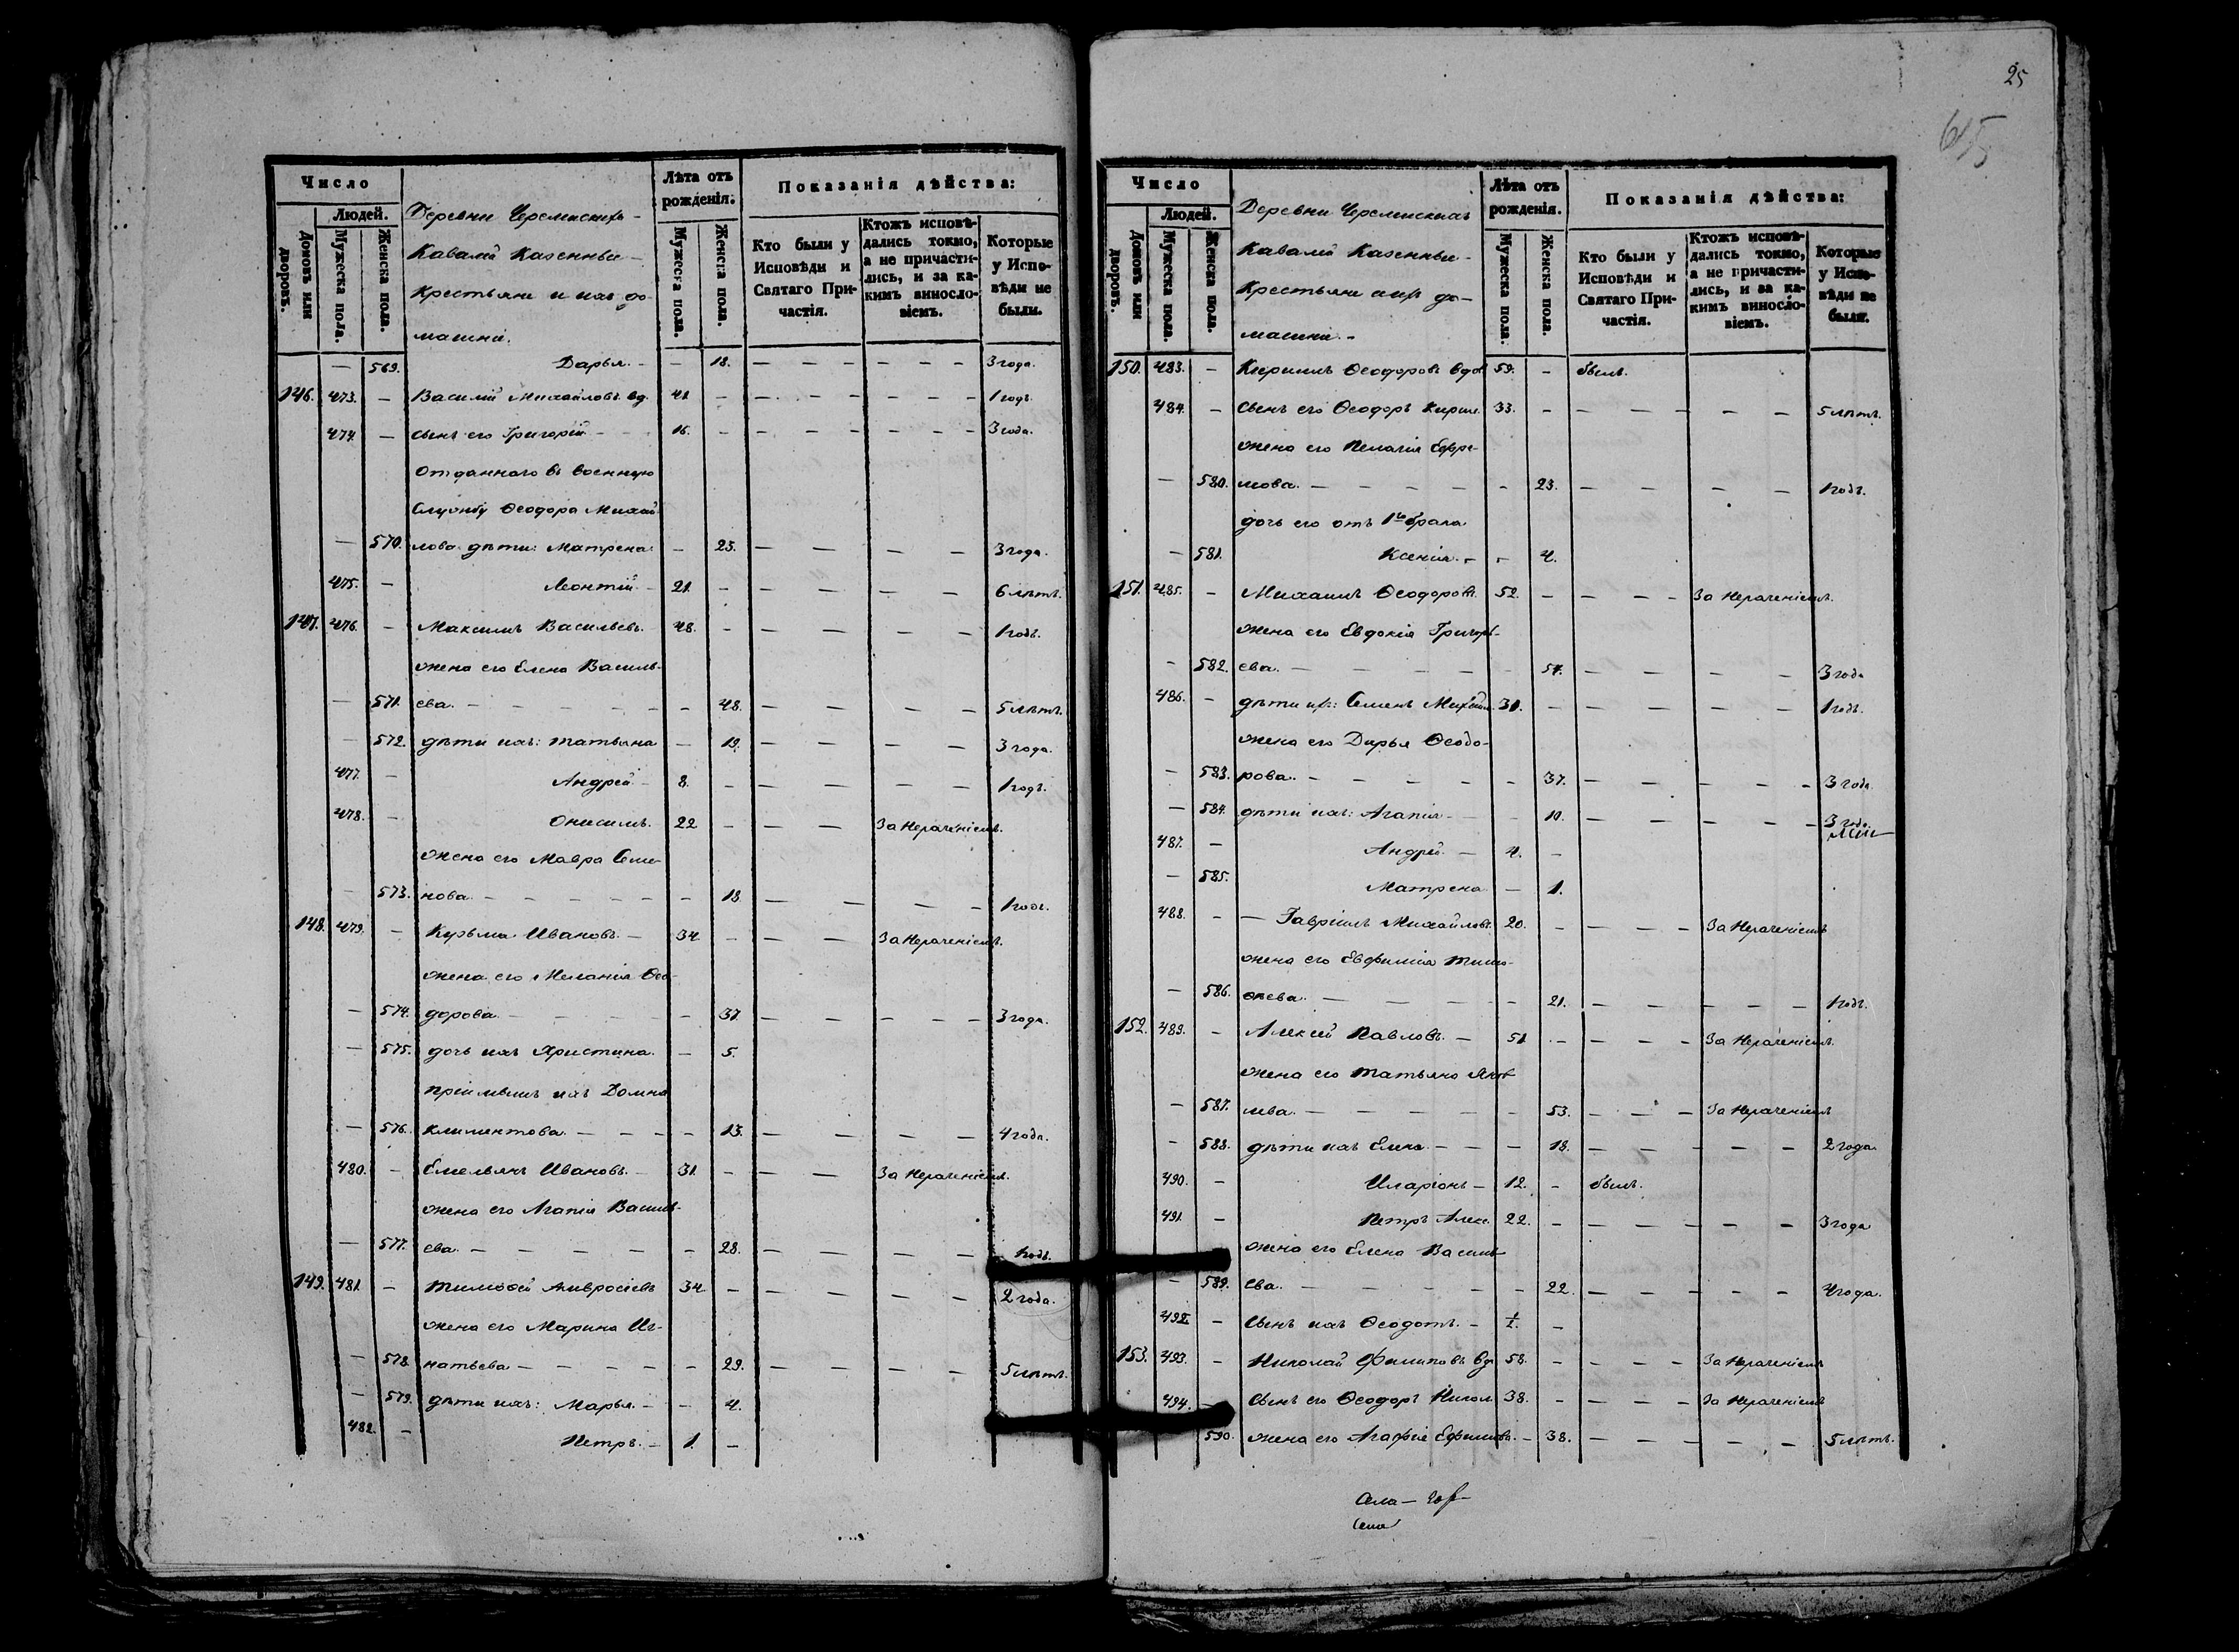 25
615
Число
Людей.
Домовъ или дворовъ.
Мужеска пола.
Женска пола.
Деревни Черемискихъ
Кавалй Казенныи
Крестьяне и ихъ до-
машни.
Лѣта отъ рожденія.
Мужеска пола.
Женска пола.
Показанія дѣйства:
Кто были у Исповѣди и Святаго Причастія.
Ктожъ исповѣдались токмо, а не причастились, и за какимъ винословіемъ.
Которые у Исповѣди не были.
— 569. Дарья. — — 18. — — — — — — 3 года.
146. 473. — Василій Михайловъ вд. 41. — — — — — — — 1 годъ.
474. — сынъ его Григорій — 16. — — — — — — — 3 года.
Отданнаго въ военную
Службу Ѳеодора Михай-
— 570. лова дѣти: Матрена — 23. — — — — 3 года.
475. — Леонтій — 21. — — — — — 6 лѣтъ.
147. 476. — Максимъ Васильевъ. 48. — — — — — 1 годъ.
жена его Елена Василь-
— 571. ева. — — — — — — 48. — — — — 5 лѣтъ.
— 572. дѣти ихъ: Татьяна — 19. — — — — 3 года.
477. — Андрей — 8. — — — — — 1 годъ.
478. — Онисимъ. 22 — — — За Нерачениемъ.
жена его Мавра Семе-
— 573. нова — — — — — — 18. — — — — 1 годъ.
148. 479. — Кузьма Ивановъ. — 34. — — — За Нерачениемъ.
жена его Меланія Ѳео-
— 574. дорова — — — — — 37. — — — — — 3 года.
— 575. дочь ихъ Христина. — 5.
пріимышъ ихъ Домна
— 576. Климентова. — — — — 13. — — — — 4 года.
480. — Емельянъ Ивановъ. — 31. — — — За Нерачениемъ.
жена его Агапія Василь-
— 577. ева. — — — — — — 28. — — — — 1 годъ.
149. 481. — Тимоѳей Амвросіевъ 34. — — — — — 2 года.
жена его Марина Иг-
— 578. натьева — — — — — 29. — — — — 5 лѣтъ.
— 579. дѣти ихъ: Марья. — — 4.
482. — Петръ. — 1. —
Число
Людей.
Домовъ или дворовъ.
Мужеска пола.
Женска пола.
Деревни Черемискихъ
Кавалй Казенныи
Крестьяне и ихъ до-
машни. —
Лѣта отъ рожденія.
Мужеска пола.
Женска пола.
Показанія дѣйства:
Кто были у Исповѣди и Святаго Причастія.
Ктожъ исповѣдались токмо, а не причастились, и за какимъ винословіемъ.
Которые у Исповѣди не были.
150. 483. — Кирилъ Ѳеодоровъ вдов 59. — былъ.
484. — Сынъ его Ѳеодоръ Кирил. 33. — — — — — — 5 лѣтъ.
жена его Пелагія Ефре-
— 580. мова. — — — — — — 23. — — — — 1 годъ.
дочь его отъ 1го брака
— 581. Ксенія. — — 4.
151. 485. — Михаилъ Ѳеодоровъ. 52. — — — — За Нерачениемъ.
жена его Евдокія Григорь-
— 582. ева. — — — — — 51. — — — — 3 года
486. — дѣти ихъ: Семенъ Михайл. 31. — — — — — 1 годъ.
жена его Дарья Ѳеодо-
— 583. рова. — — — — — — 37. — — — — — 3 года.
— 584. дѣти ихъ: Агапія — — 10. — — — — — 3 года
487. — Андрей — 4. —
— 585. Матрена — 1.
488. — — Гавріилъ Михайловъ. 20. — — — — За Нерачениемъ
жена его Евфимія Тимо-
— 586. ѳеева. — — — — — 21. — — — — — 1 годъ.
152. 489. — Алексій Павловъ. — 51. — — — — За Нерачениемъ.
жена его Татьяна Яков-
— 587. лева. — — — — — 53. — — — За Нерачениемъ
— 588. дѣти ихъ Елена — — — 18. — — — — — 2 года
490. — Иларіонъ — 12. — былъ.
491. — Петръ Алекс. 22. — — — — — — 3 года
жена его Елена Василь-
— 589. ева. — — — — — — 22. — — — — — 4 года.
492 — Сынъ ихъ Ѳеодотъ. — —
153. 493. — Николай Филиповъ вдо 58. — — — — За Нерачениемъ
494. — Сынъ его Ѳеодоръ Никол. 38. — — — — За Нерачениемъ
590. жена его Агафія Ефимова. — 38. — — — — — 5 лѣтъ.